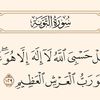 سُورَةُ التَّوْبَةِ
ـلْ حَسْبِىَ ٱللَّهُ لَآ إِلَٰهَ إِلَّا هُوَ ۖ
وَرَبُّ ٱلْعَرْشِ ٱلْعَظِيمِ ١٢٩